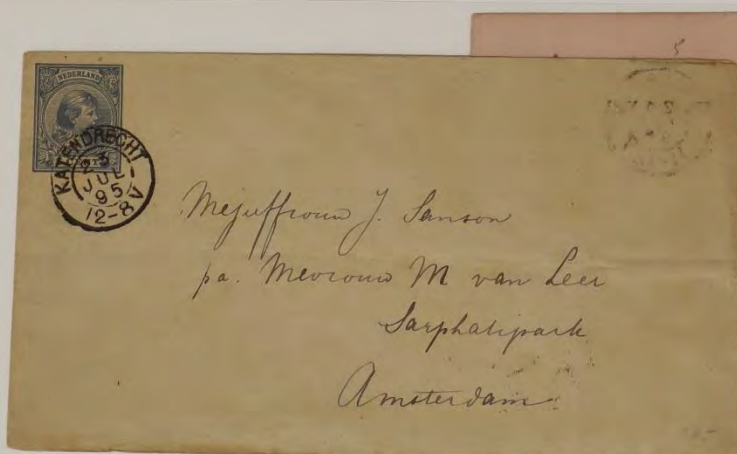 NEDERLAND
KATENDRECHT
23
JUL
95
12-8V
Mejuffrouw J. Sanson
pa. Mevrouw M van Leer
Sarphatipark
Amsterdam.
5